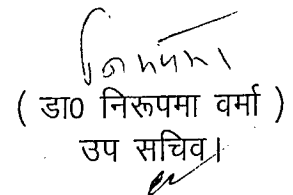 ( डा0 निरूपमा वर्मा )
उप सचिव।